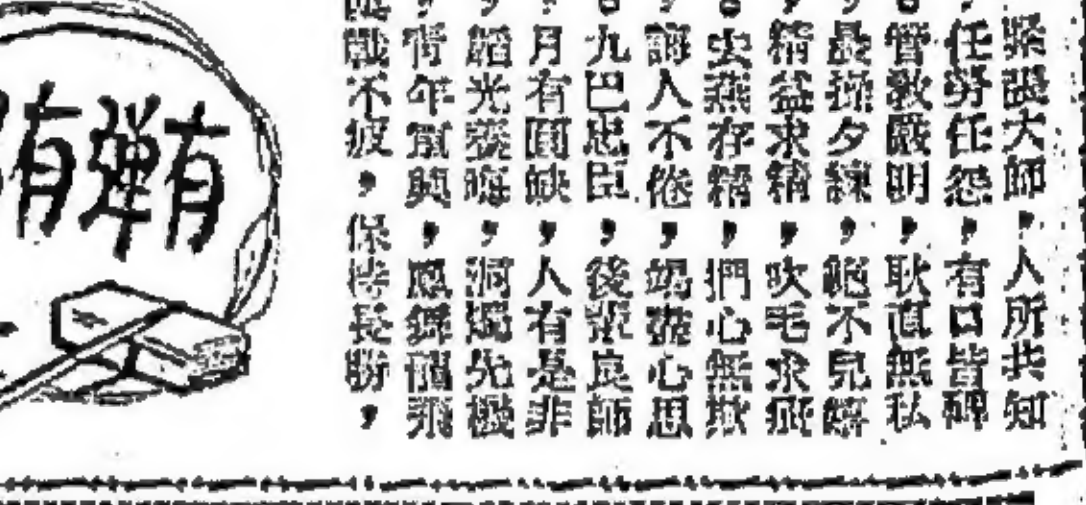 緊張大師，人所共知
，任勞任怨，有口皆碑
。管教嚴明，耿直無私
，晨操夕練，絕不兒嬉
，精益求精，吹毛求疵
。去蕪存精，們心無欺
，誨人不倦，竭盡心思
。九巴忠臣，後輩良師
，月有圓缺，人有是非
，韜光養晦，洞燭先機
，青年當興，鷹舞龍飛
戰不疲，保持長勝，
有彈有